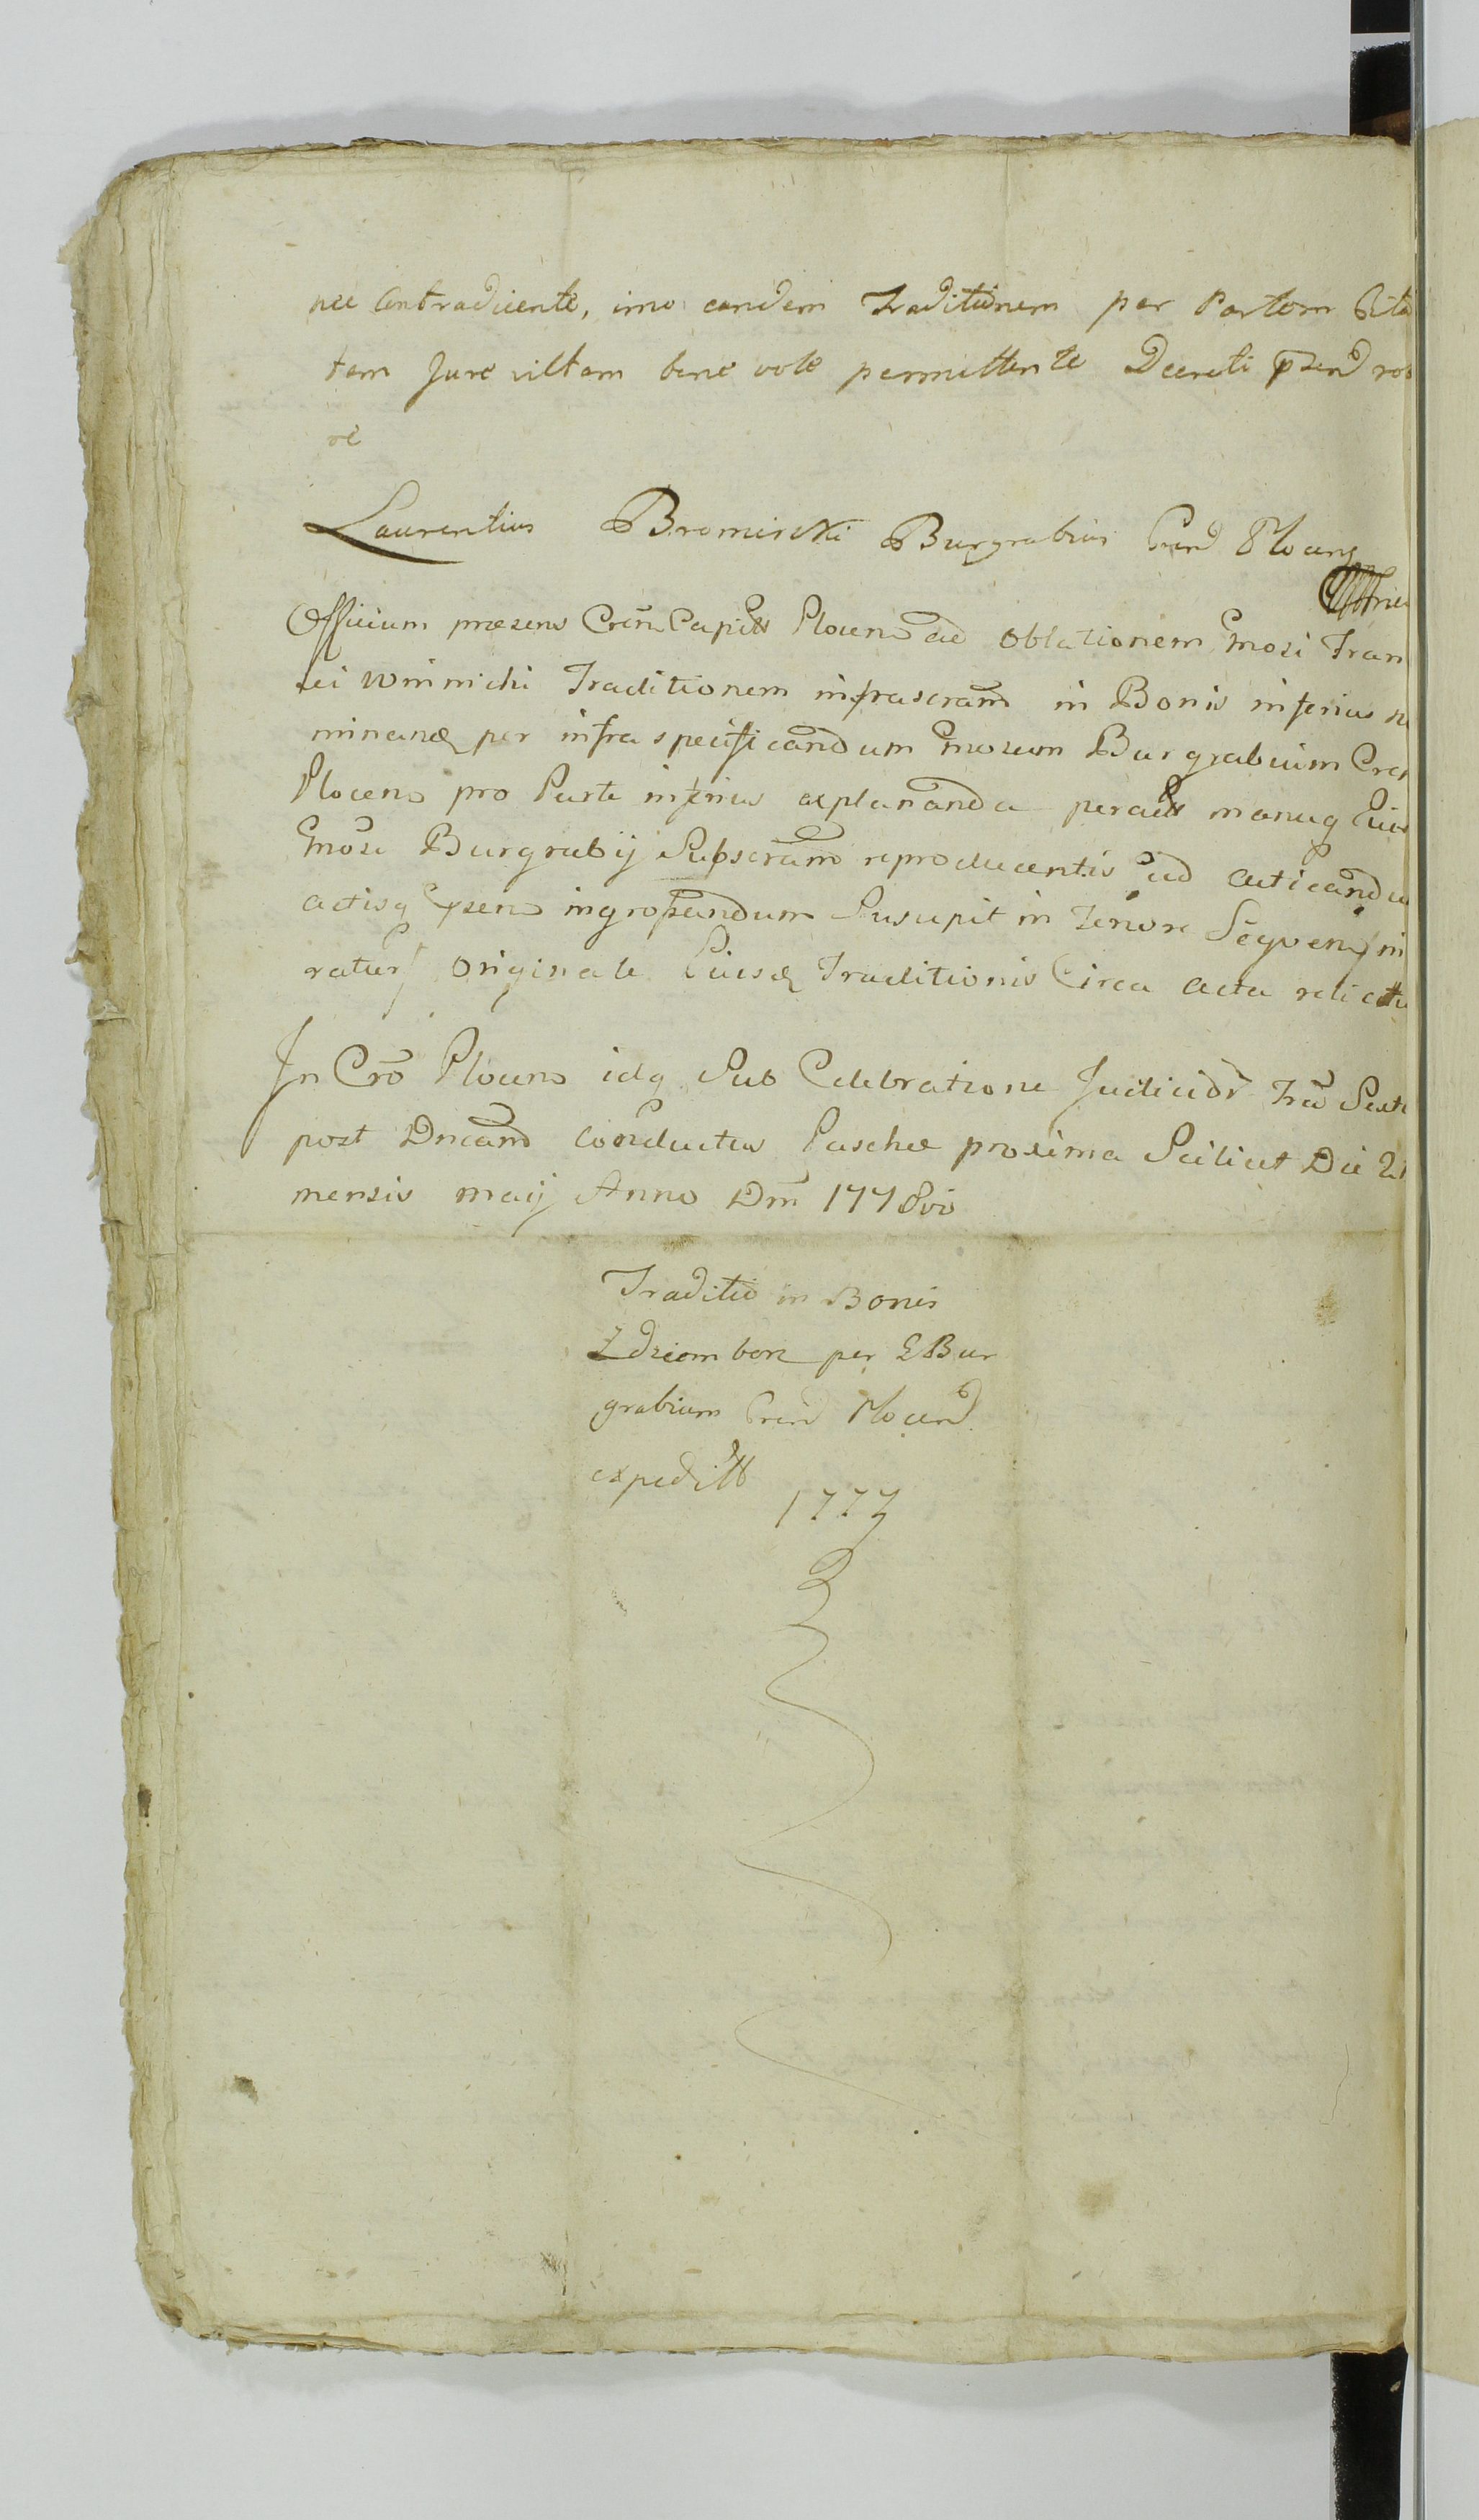 nec Contradicente, imo eandem Traditionem per Partem Cita
tam Jure victam bene vole permittente Decreti psen ro
re
Laurentius Bromirski Burgrabius Cren Plocens
Officium præsens Cren Capitle Plocen ad oblationem Gnosi Fran
sci Winnicki Traditionem infrascram in Bonis inferius no
minand per infra specificandum Gnosum Burgrabium Cren
Plocens pro Parte inferius explananda peract manuq Eius
Gnosi Burgrabij Subscram reproducentis ad acticandu
actisq psen ingrossandum Suscepit in Tenore Sequen in
ratur originale Eiusd Traditionis Circa acta relictu
In Cro Plocens idq Sub Celebratione Judicior Fra Sexta
post Dncam Conductus Paschæ proxima Scilicet Die 2
mensis maij Anno Dni 1778vo
Traditio in Bonis
Zdziembor per G Bur
grabium Cren Plocen
expedit
1777